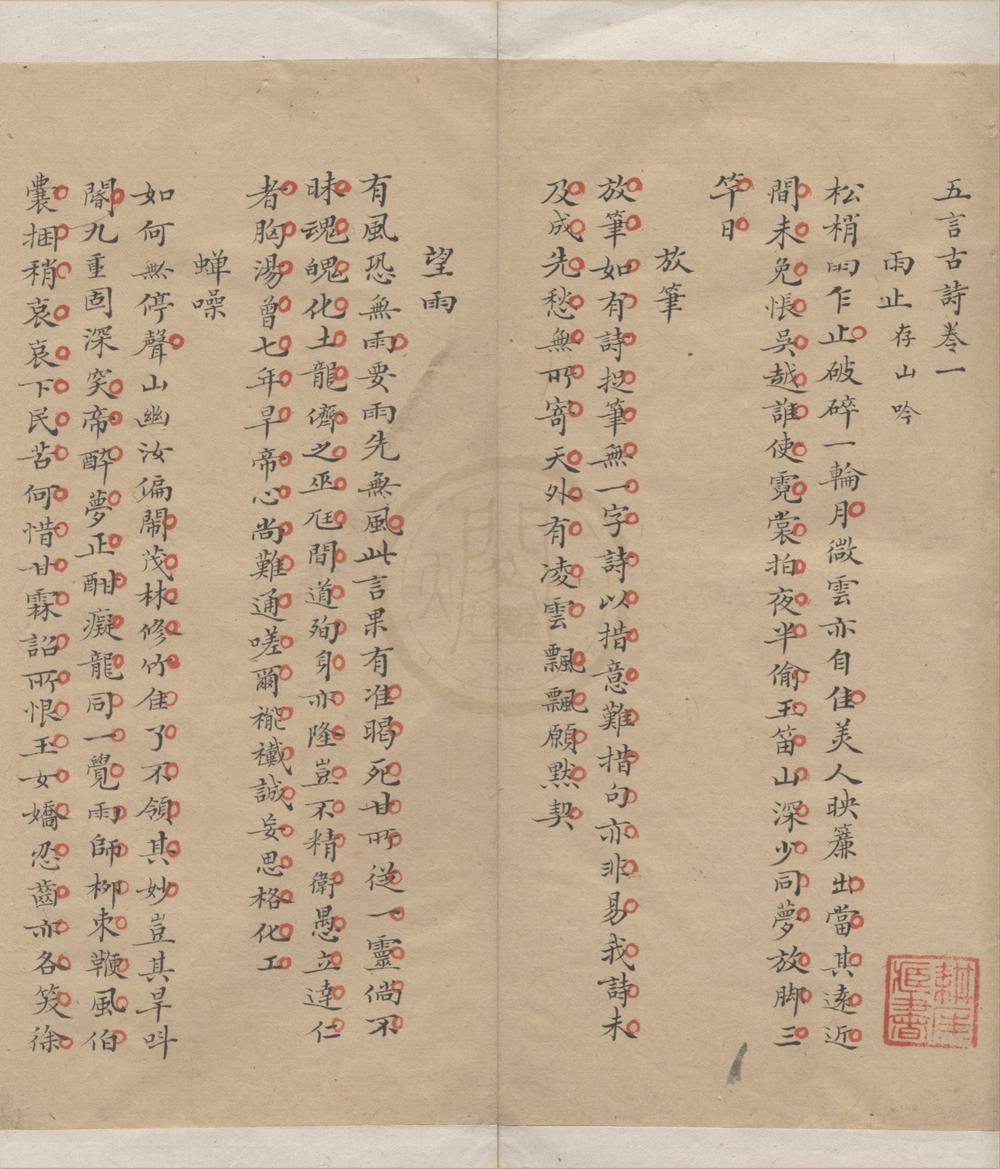 五言古詩卷一
雨止 存山吟
松梢雨乍止破碎一輪月微雲亦自佳美人映簾出當其遠近
間未免悵吳越誰使霓裳拍夜半偷玉笛山深少同夢放脚三
竿日
放筆
放筆如有詩捉筆無一字詩以措意難措句亦非易我詩未
及成先愁無所寄天外有凌雲飄飄願默契
望雨
有風恐無雨要雨先無風此言果有准暍死甘所從一靈倘不
昧魂魄化土龍儕之巫尫間道殉身亦隆豈不精衛愚立達仁
者胸湯曾七年旱帝心尚難通嗟爾褦襶誠妄思格化工
蟬噪
如何無停聲山幽汝偏鬧茂林修竹佳了不領其妙豈其旱呌
閽九重固深突帝醉夢正酣癡龍同一覺雨師柳束鞭風伯
囊捆稍哀哀下民苦何惜甘霖詔所恨玉女嬌忍齒亦各笑徐